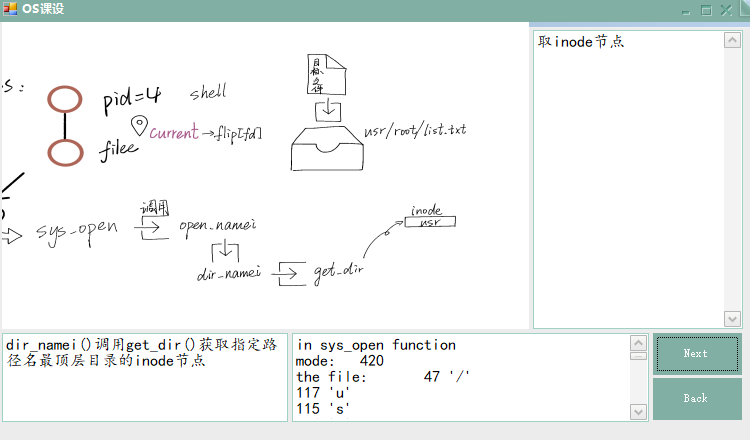 OS课设
s:
pid=4
shell
current→flip[fd]
filee
目标文件
usr/root/list.txt
取inode节点
sys_open
调用
open_namei
dir_namei
get_dir
inode
usr
dir_namei()调用get_dir()获取指定路
径名最顶层目录的inode节点
in sys_open function
mode: 420
the file: 47 '/'
117 'u'
115 's'
Next
Back